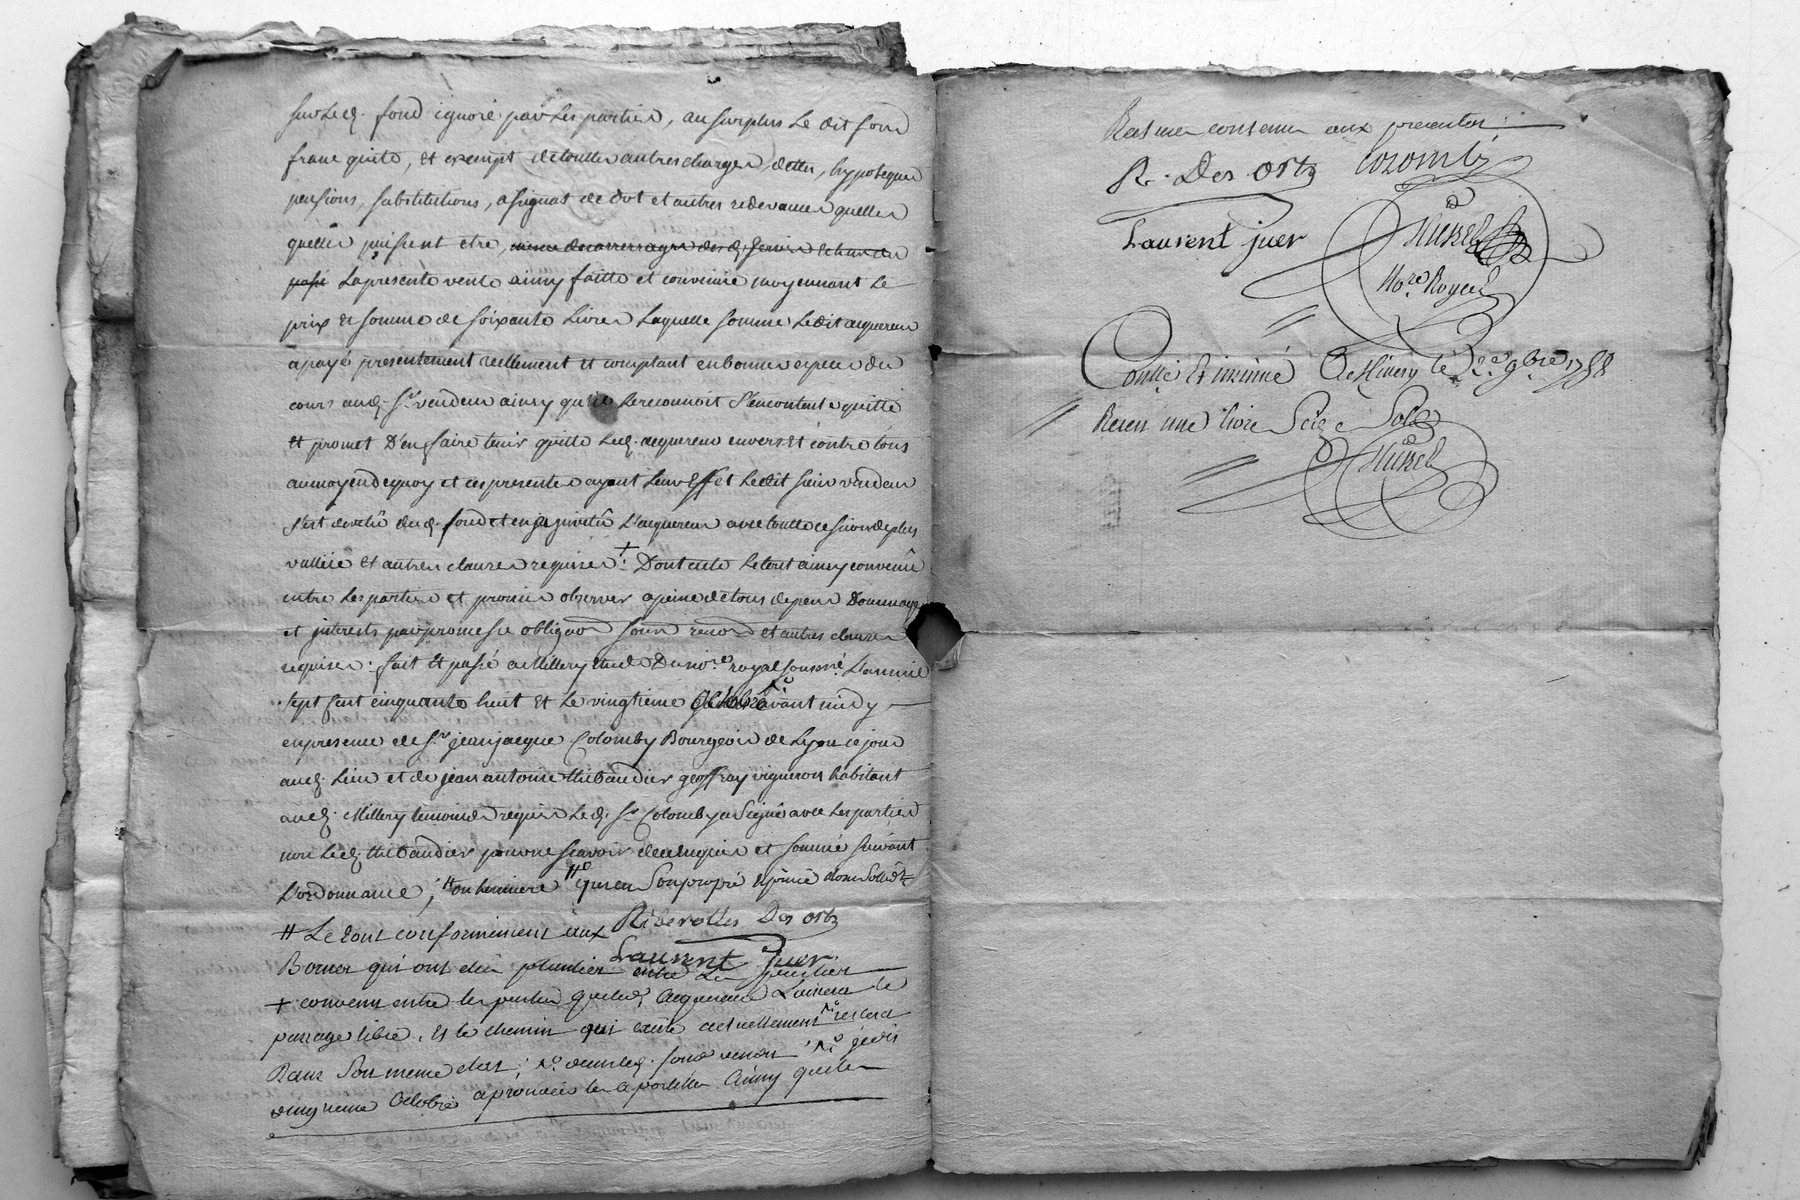 sur led. fond ignoré par les parties, au surplus le dit fond
franc quitte, et exempt de touttes autres charges, dettes, hypoteques
pensions, substitutions, assignat de dot et autres redevances quelles
quelles puissent etre,
la presente vente ainsy faitte et convenue moyennant le
prix et somme de soixante livres laquelle somme le dit acquereur
a payé presentement reellement et comptant en bonnes especes du
cours aud. Sr. vendeur ainsy qu'il le reconnoit s'en contente quitte
et promet d'en faire tenir quitte led. acquereur envers et contre tous
au moyen de quoy et ces presentes ayant leur effet ledit sieur vendeur
s'est devetû dud. fond et en a investû l'acquereur avec toutte cession de plus
vallüe et autres clauses requises + Dont cecte le tout ainsy convenû
entre les parties et promis observer a peine de tous depens dommages
et interests par promesse obligaon soum renon et autres clauses
requises. fait et passé a Millery etude du nore. royal soussné. L'an mil
sept cent cinquante huit et le vingtieme octobre avant midy
en presence de Sr. jean jacque Colomby Bourgeois de Lyon ce jour
aud. lieu et de jean antoine thibaudier geoffray vigneron habitant
aud. Millery temoins requis led. Sr. Colomby a signé avec les parties
non led. thibaudier pour ne sçavoir de ce enquis et sommé suivant
L'ordonnance,
# Le tout conformement aux Riverolles Des orts
Bornes qui ont été plantées entre Les parties
Laurent juer
+ convenu entre les parties que led. acquereur Laissera le
passage libre, et le chemin qui existe actuellement restera
Dans son meme etat; dans led. fond vendu
vingtieme octobre aprouvés les apostilles ainsy que les
aux presentes
R. Des orts Colomby
Laurent juer
Nore. Royal
Conllé Et insinué A Millery le 2e. 9bre 1758
Receu une livre Seize Sols